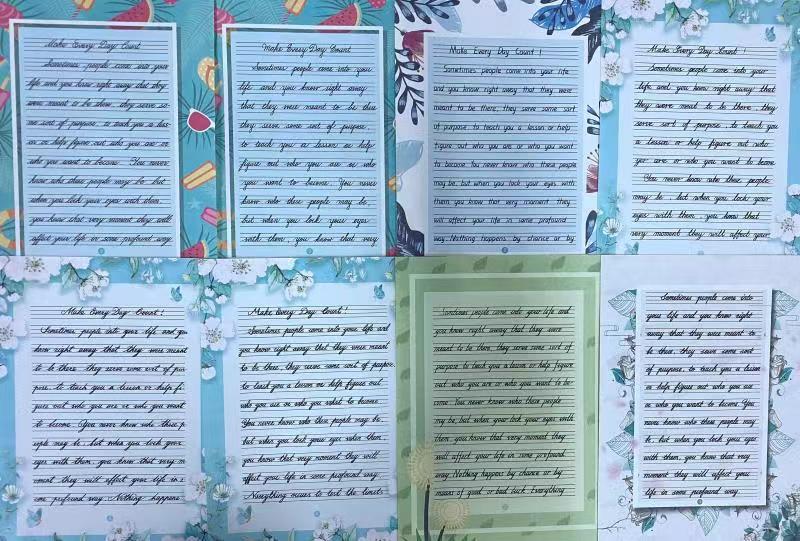 Make Every Day Count
Sometimes people come into your
life and you know right away that they
were meant to be there, they serve so-
me sort of purpose, to teach you a les-
on or help figure out who you are or
who you want to become. You never
know who these people may be but
when you lock your eyes with them,
you know that very moment they will
affect your life in some profound way.
Make Every Day Count
Sometimes people come into you
life and you know right away
that they were meant to be thie
they serve some sort of purpose,
to teach you a lesson or help
figure out who you are or who
you want to become. You never
know who these people may be,
but when you lock your eyes
with them, you know that very
Make Every Day Count !
Sometimes people come into your life
and you know right away that they were
meant to be there, they serve some sort
of purpose to teach you a lesson or help
figure out who you are or who you want
to become. You never know who these people
may be, but when you lock your eyes with
them, you know that very moment they
will affect your life in some profound
way. Nothing happens by chance or by
Make Every Day Count !
Sometimes people come into your
life and you know right away that
they were meant to be there, they
serve sort of purpose, to teach you
a lesson or help figure out who
you are or who you want to become
You never know who these people
may be, but when you lock your
eyes with them, you know that
very moment they will affect your
Make Every Day Count !
Sometimes people into your life and you
know right away that they were meant
to be there they serve some sort of pur-
pose, to teach you a lesson or help fi-
gure out who you are or who you want
to become. You never know who these p
eople may be, but when you lock your
eyes with them, you know that very m
oment they will affect your life in s
ome profound way. Nothing happens
Make Every Day Count !
Sometimes people come into your life and
you know right away that they were
meant to be there, they serve some sort of purpose,
to teach you a lesson or help figure out
who you are or who you what to become
You never know who these people may be,
but when you lock your eyes then.
you know that very moment they will
affect your life in some profound way.
to test the limits
Sometimes people come into your life and
you know right away that they were
meant to be there, they serve some sort of
purpose to teach you a lesson or help figure
out who you are or who you want to be-
come. You never know who these people
may be, but when you lock your eyes with
them, you know that very moment they
will affect your life in some profound
way. Nothing happens by chance or by
means of good or bad luck. Everything
Sometimes people come into
your life and you know right
away that they were meant to
be there, they serve some sort
of purpose, to teach you a lesson
or help figure out who you are
or who you want to become. You
never know who these people may
be, but when you lock your eyes
with them, you know that very
moment they will affect your
life in some profound way.